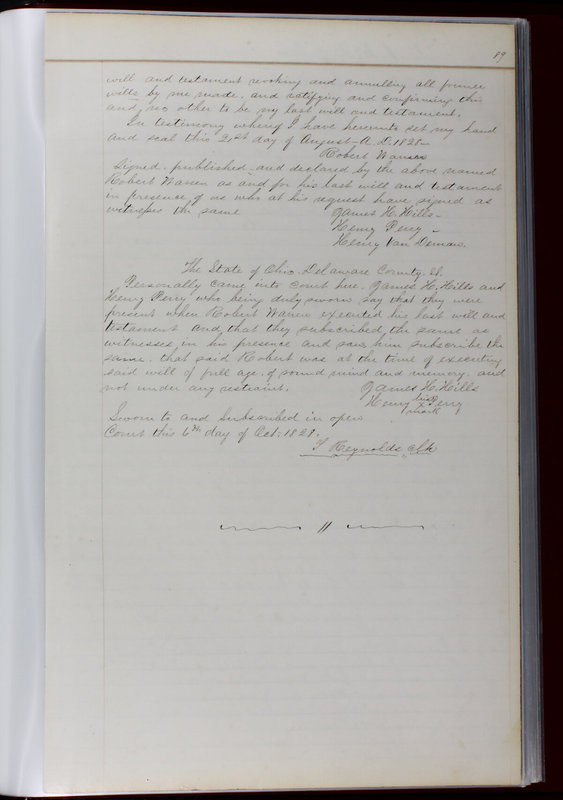 89
will and testament revoking and annulling all former
wills by me made, and ratifying and confirming this
and no other to be my last will and testament.
In testimony whereof I have hereunto set my hand
and seal this 21st day of August A.D. 1828
Robert Warren
Signed, published, and declared by the above named
Robert Warren as and for his last will and testament
in presence of us who at his request have signed as
witnesses the same
James H. Hills
Henry Perry
Henry Van Deman.
The State of Ohio. Delaware County. SS.
Personally came into court here. James H. Hills and
Henry Perry who being duly sworn say that they were
present when Robert Warren executed his last will and
testament and that they subscribed the same as
witnesses in his presence and saw him subscribe the
same. that said Robert was at the time of executing
said will of full age, of sound mind and memory, and
not under any restraint.
James H. Hills
Henry his x mark Perry
Sworn to and Subscribed in open
Court this 6th day of Oct. 1828.
T Reynolds Clk